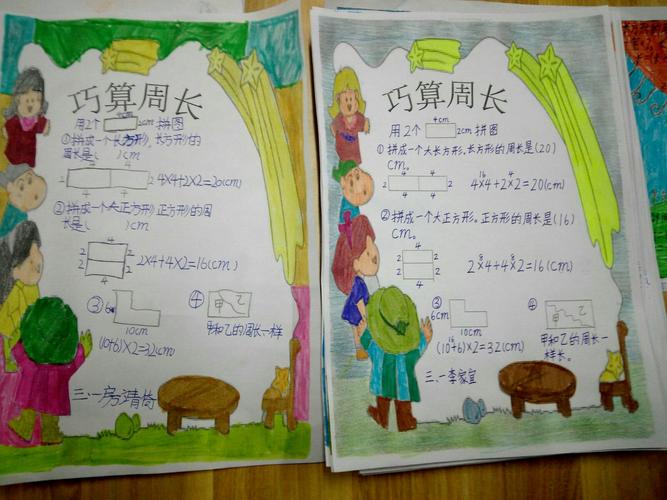 巧算周长
4cm
用2个 2cm 拼图
①拼成一个长方形,长方形的
周长是( )cm
4 4
2 2 4×4+2×2=20(cm)
4 4
②拼成一个大正方形 正方形的周
长是( )cm
4
2 2
2 2 2×4+4×2=16(cm)
4
③ 6cm ④ 甲 乙
10cm 甲和乙的周长一样
(10+6)×2=32(cm)
三、一房清椅
巧算周长
4cm
用2个 2cm 拼图
①拼成一个大长方形。长方形的周长是(20)
cm。
4 4
2 2 4×4+2×2=20(cm)
16 4
4 4
②拼成一个大正方形。正方形的周长是(16)
cm。
4
2 2
2 2 2×4+4×2=16(cm)
8 8
4
③ ④ 甲 乙
6cm
10cm 甲和乙的周长一
(10+6)×2=32(cm) 样长。
16
三、一李家宜